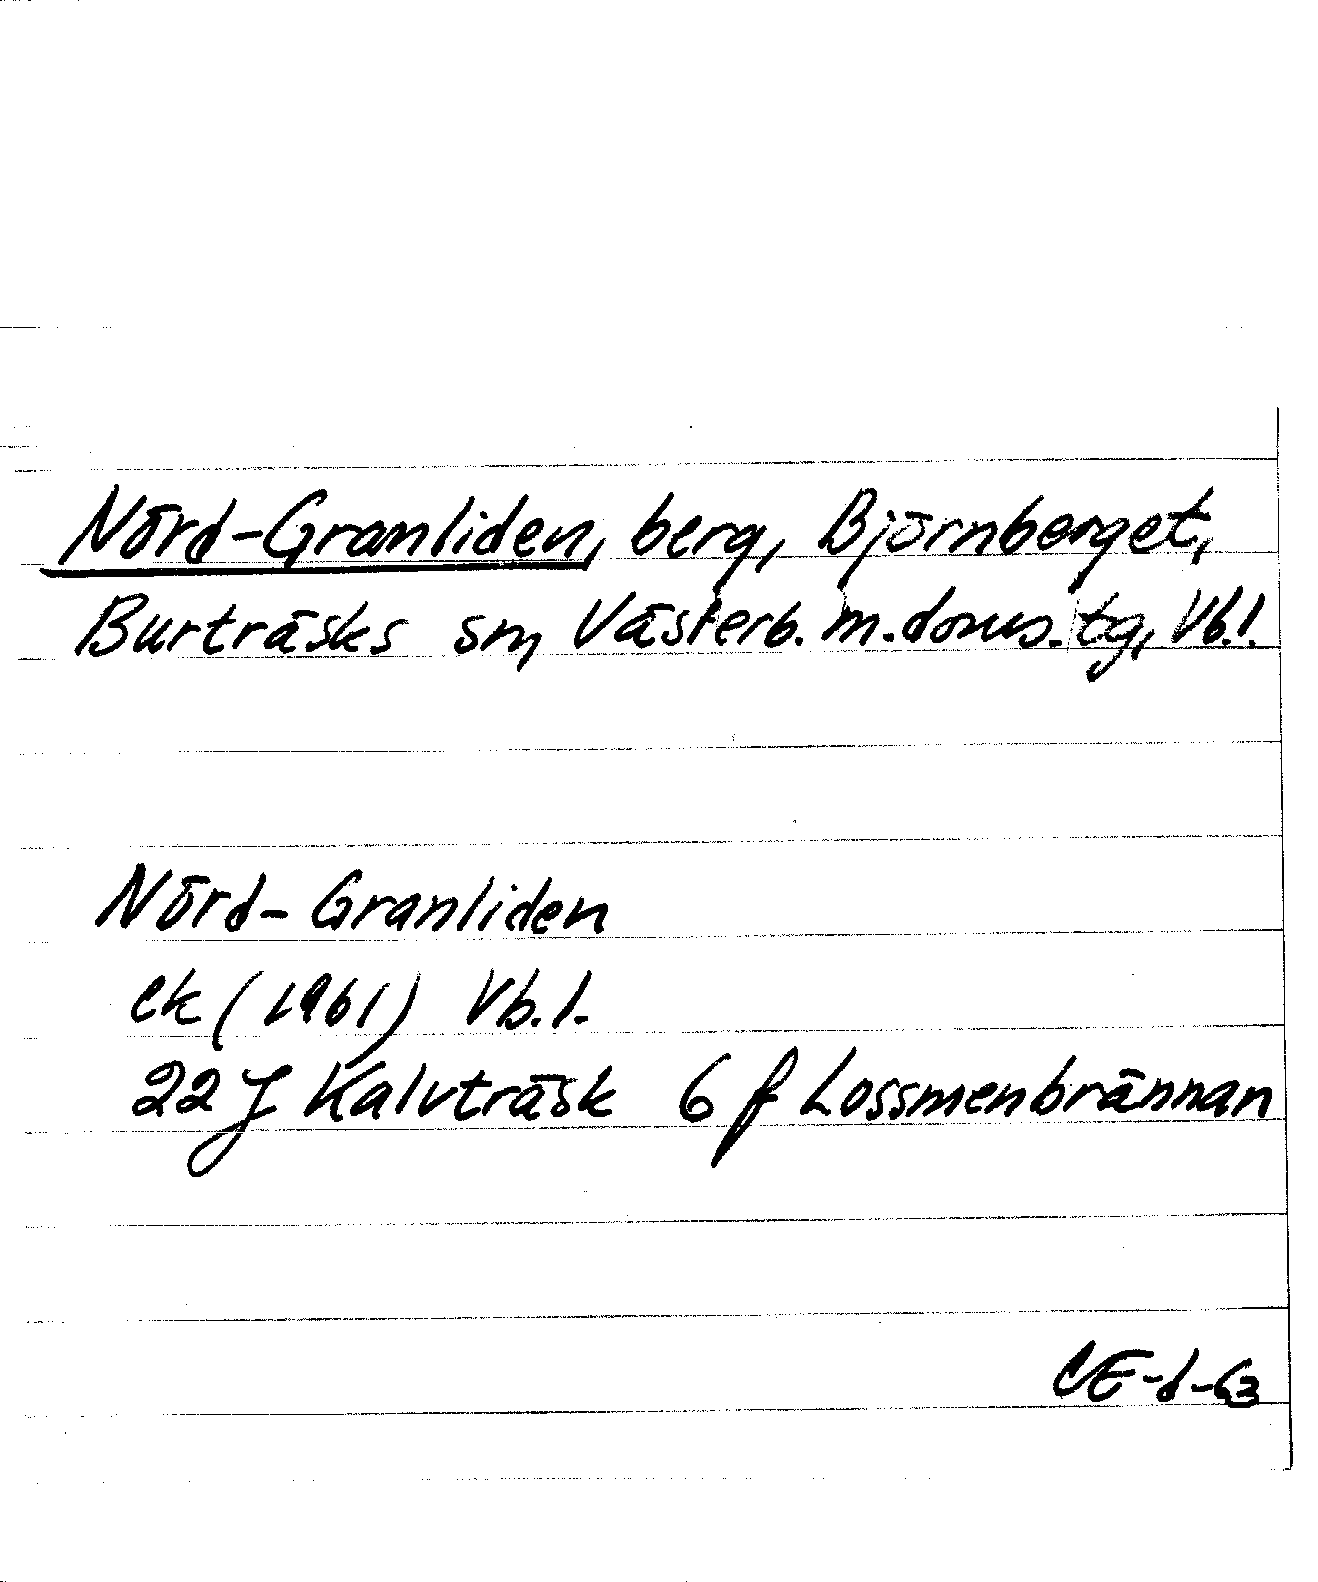 Nörd-Granliden, berg, Björnberget,
Burträsks sn, Västerb. m. doms. tg, Vb.l.
Nörd-Granliden
ek (1961) Vb.l.
22 J Kalvträsk 6 f Lossmenbrännan
CE-d-63